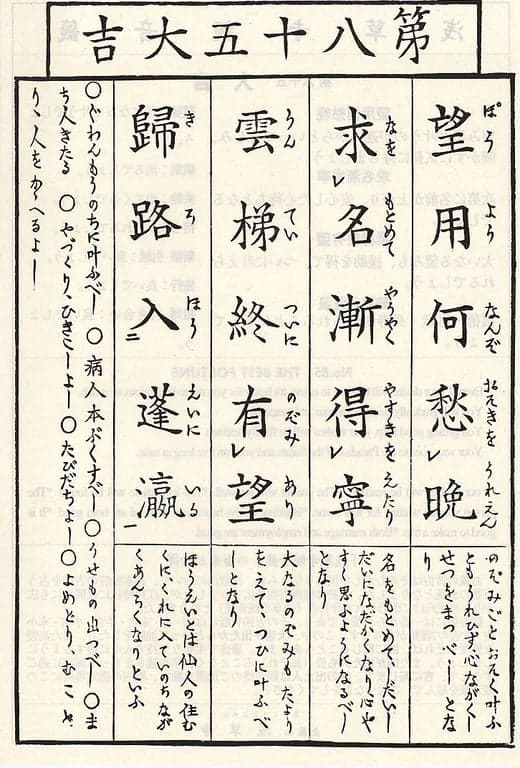 第八十五大吉
望用何愁レ晩
ぼう より なんぞ おそきを うれえん
のぞみごとおそく叶ふ
とも、うれひず、心ながくし
せつをまつべし、とな
り
求レ名漸得レ寧
なを もとめて やうやく やすきを えたり
名をもとめてしだいし
だいになだかくなり心や
すく思ふようになるべし
となり
雲梯終有レ望
うん てい ついに のぞみ あり
大なるのぞみもたより
をえて、つひに叶ふべ
しとなり
歸路入二蓬瀛一
き ろ ほう えいに いる
ほうえいとは仙人の住む
くに、これに入ていのちなが
くめでたくなりといふ
〇ぐわんもうのちに叶ふべし 〇病人本ぶくすべし 〇うせもの出づべし 〇ま
ち人きたる 〇やづくり、ひきこしよし 〇たびだちよし 〇よめどり、むこと
り、人をかゝへるよし